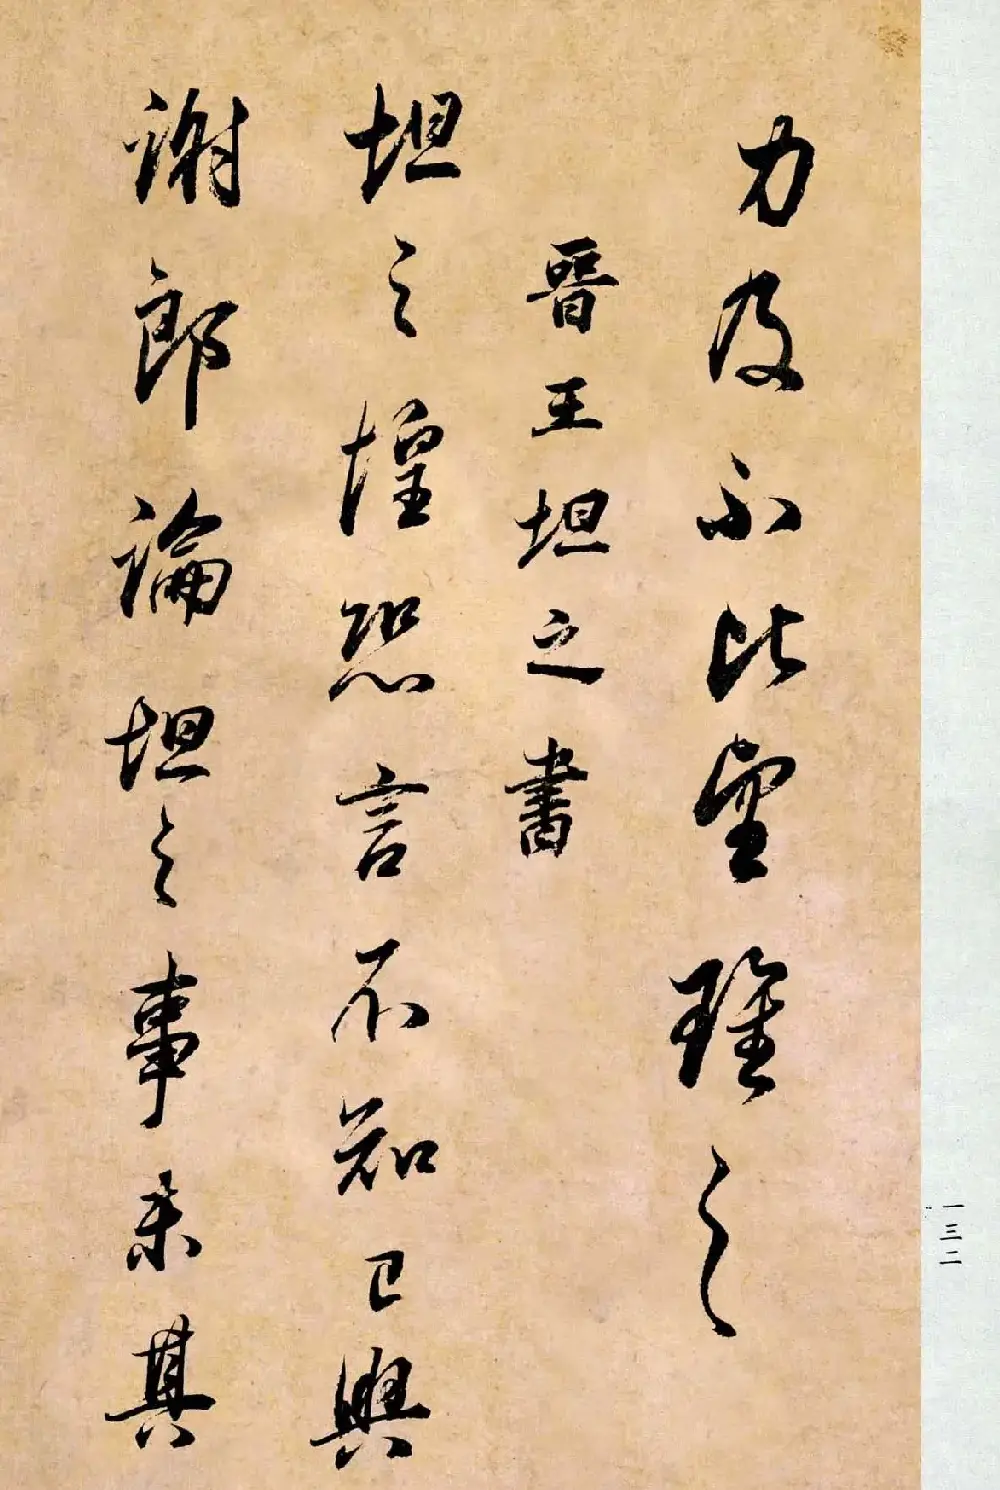 力及不比望瑾之
晉王坦之書
坦之惶恐言不知已與
謝郎論坦之事未其
一三二